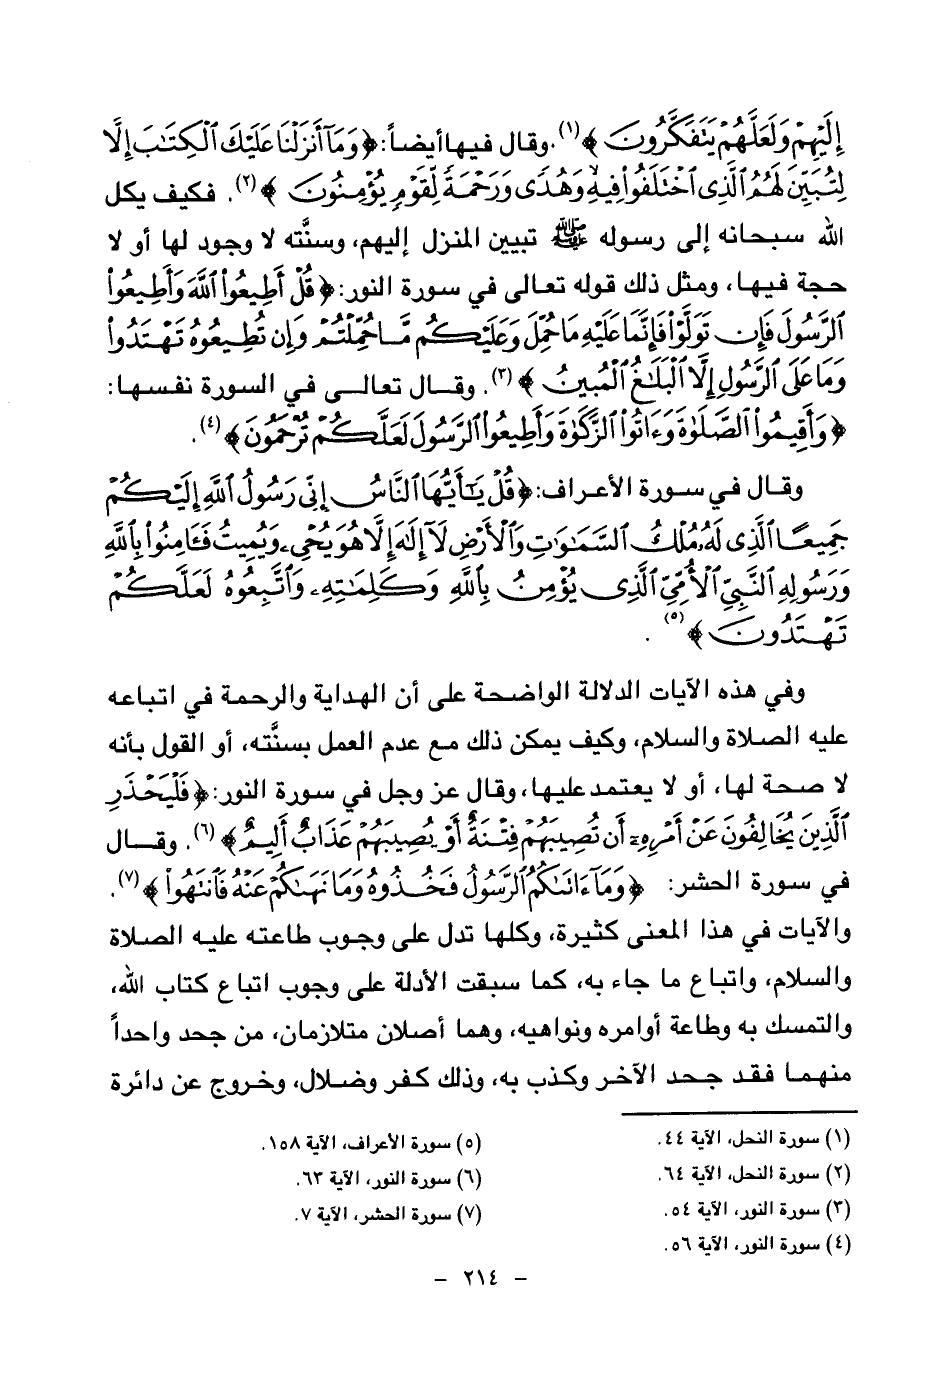 إِلَيْهِمْ وَلَعَلَّهُمْ يَتَفَكَّرُونَ ﴾(١). وقال فيها أيضاً: ﴿ وَمَآ أَنزَلْنَا عَلَيْكَ ٱلْكِتَٰبَ إِلَّا
لِتُبَيِّنَ لَهُمُ ٱلَّذِى ٱخْتَلَفُوا۟ فِيهِ ۙ وَهُدًى وَرَحْمَةً لِّقَوْمٍ يُؤْمِنُونَ ﴾(٢). فكيف يكل
الله سبحانه إلى رسوله ﷺ تبيين المنزل إليهم، وسنَّته لا وجود لها أو لا
حجة فيها، ومثل ذلك قوله تعالى في سورة النور: ﴿ قُلْ أَطِيعُوا۟ ٱللَّهَ وَأَطِيعُوا۟
ٱلرَّسُولَ فَإِن تَوَلَّوْا۟ فَإِنَّمَا عَلَيْهِ مَا حُمِّلَ وَعَلَيْكُم مَّا حُمِّلْتُمْ وَإِن تُطِيعُوهُ تَهْتَدُوا۟
وَمَا عَلَى ٱلرَّسُولِ إِلَّا ٱلْبَلَٰغُ ٱلْمُبِينُ ﴾(٣). وقال تعالى في السورة نفسها:
﴿ وَأَقِيمُوا۟ ٱلصَّلَوٰةَ وَءَاتُوا۟ ٱلزَّكَوٰةَ وَأَطِيعُوا۟ ٱلرَّسُولَ لَعَلَّكُمْ تُرْحَمُونَ ﴾(٤).
وقال في سورة الأعراف: ﴿ قُلْ يَٰٓأَيُّهَا ٱلنَّاسُ إِنِّى رَسُولُ ٱللَّهِ إِلَيْكُمْ
جَمِيعًا ٱلَّذِى لَهُۥ مُلْكُ ٱلسَّمَٰوَٰتِ وَٱلْأَرْضِ لَآ إِلَٰهَ إِلَّا هُوَ يُحْىِۦ وَيُمِيتُ فَـَٔامِنُوا۟ بِٱللَّهِ
وَرَسُولِهِ ٱلنَّبِىِّ ٱلْأُمِّىِّ ٱلَّذِى يُؤْمِنُ بِٱللَّهِ وَكَلِمَٰتِهِۦ وَٱتَّبِعُوهُ لَعَلَّكُمْ
تَهْتَدُونَ ﴾(٥).
وفي هذه الآيات الدلالة الواضحة على أن الهداية والرحمة في اتباعه
عليه الصلاة والسلام، وكيف يمكن ذلك مع عدم العمل بسنَّته، أو القول بأنه
لا صحة لها، أو لا يعتمد عليها، وقال عز وجل في سورة النور: ﴿ فَلْيَحْذَرِ
ٱلَّذِينَ يُخَالِفُونَ عَنْ أَمْرِهِۦٓ أَن تُصِيبَهُمْ فِتْنَةٌ أَوْ يُصِيبَهُمْ عَذَابٌ أَلِيمٌ ﴾(٦). وقال
في سورة الحشر: ﴿ وَمَآ ءَاتَىٰكُمُ ٱلرَّسُولُ فَخُذُوهُ وَمَا نَهَىٰكُمْ عَنْهُ فَٱنتَهُوا۟ ﴾(٧).
والآيات في هذا المعنى كثيرة، وكلها تدل على وجوب طاعته عليه الصلاة
والسلام، واتباع ما جاء به، كما سبقت الأدلة على وجوب اتباع كتاب الله،
والتمسك به وطاعة أوامره ونواهيه، وهما أصلان متلازمان، من جحد واحداً
منهما فقد جحد الآخر وكذب به، وذلك كفر وضلال، وخروج عن دائرة
(١) سورة النحل، الآية ٤٤.
(٢) سورة النحل، الآية ٦٤.
(٣) سورة النور، الآية ٥٤.
(٤) سورة النور، الآية ٥٦.
(٥) سورة الأعراف، الآية ١٥٨.
(٦) سورة النور، الآية ٦٣.
(٧) سورة الحشر، الآية ٧.
- ٢١٤ -